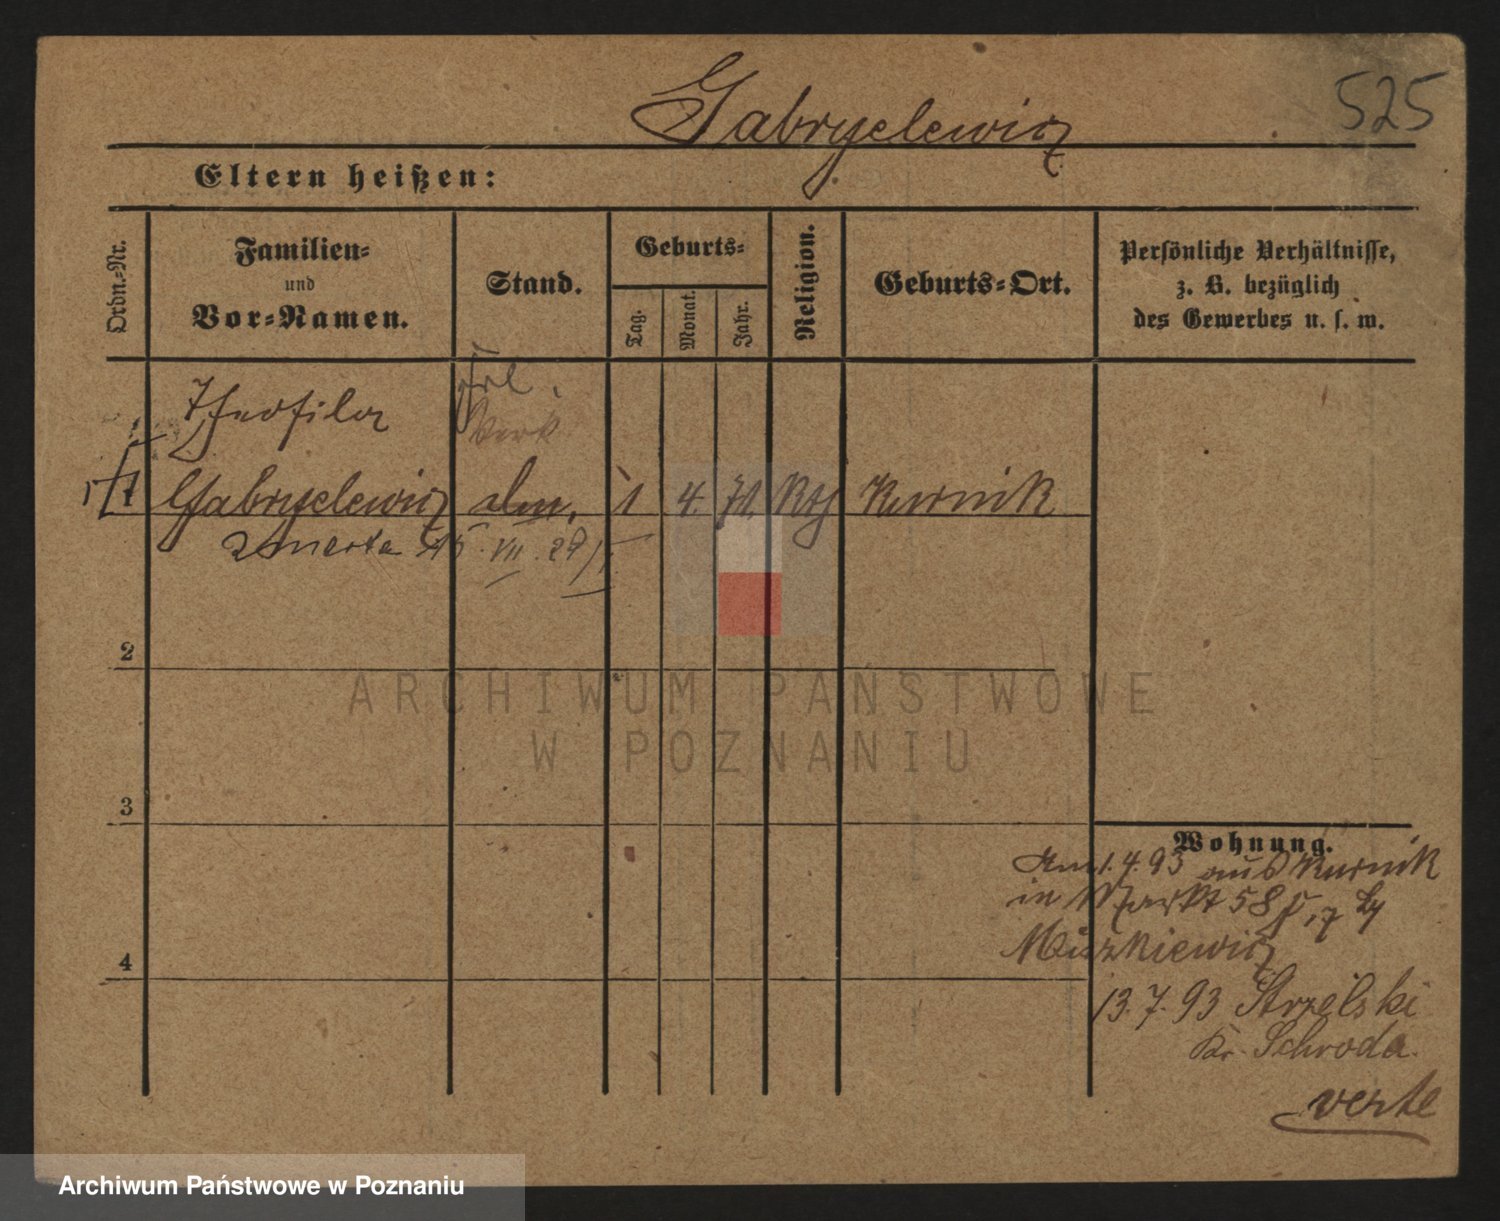 525
Gabryelewicz
Eltern heißen:
Ordn.-Nr.
Familien-
und
Vor-Namen.
Stand.
Geburts-
Tag.
Monat.
Jahr.
Religion.
Geburts-Ort.
Persönliche Verhältnisse,
z. B. bezüglich
des Gewerbes u. s. w.
Theofila
Frl.
Verk
1 Gabryelewicz 1 4. 71. Kth Kurnik
zmarła 15. VII. 29
2
3
4
ARCHIWUM PAŃSTWOWE
W POZNANIU
Wohnung.
Am 1. 4. 93 aus Kurnik
in Markt 58
13. 7. 93 Strzelski
Kr. Schroda.
verte
Archiwum Państwowe w Poznaniu